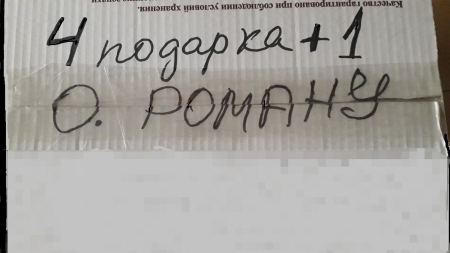 Качество гарантировано при соблюдении условий хранения.
4 подарка + 1
О. РОМАНУ